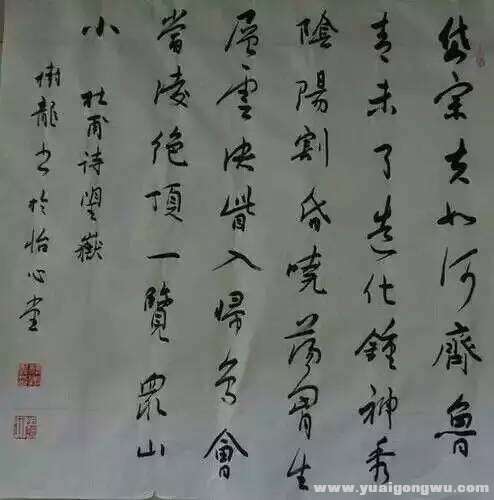 岱宗夫如何齊魯
青未了造化鍾神秀
陰陽割昏曉蕩胷生
層雲決眥入歸鳥會
當凌绝頂一覽眾山
小
杜甫诗望嶽
樹龍书於怡心堂
www.yuaigongwu.com